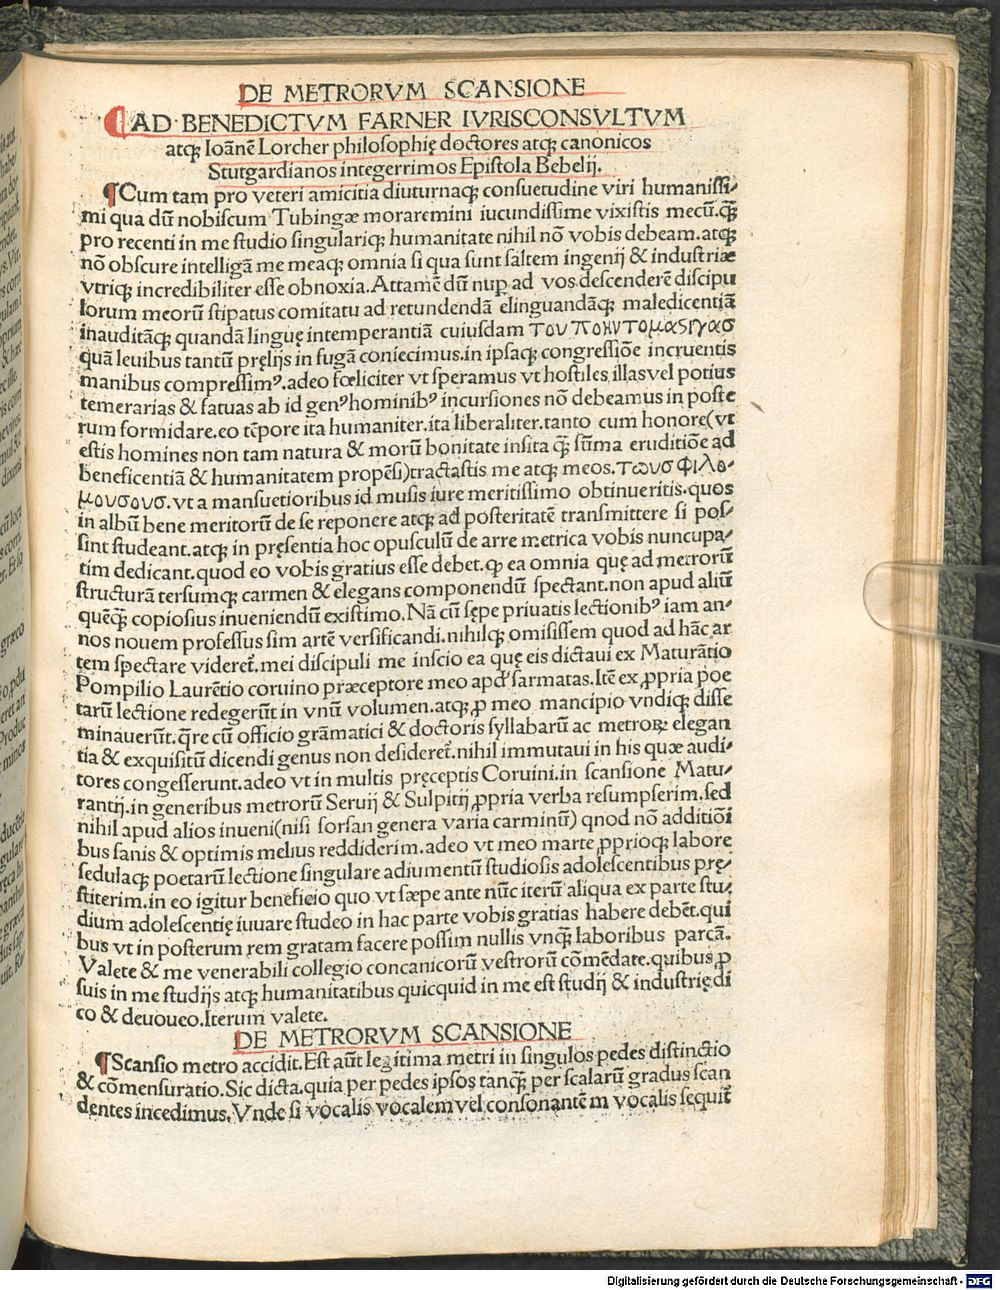 DE METRORVM SCANSIONE
AD BENEDICTVM FARNER IVRISCONSVLTVM
atqꝫ Ioānē Lorcher philosophię doctores atqꝫ canonicos
Stutgardianos integerrimos Epistola Bebelij.
¶Cum tam pro veteri amicitia diuturnaqꝫ consuetudine viri humanissi⸗
mi qua dū nobiscum Tubingæ moraremini iucundissime vixistis mecū.qꝫ̄
pro recenti in me studio singulariqꝫ humanitate nihil nō vobis debeam.atqꝫ
nō obscure intelligā me meaqꝫ omnia si qua sunt saltem ingenij & industriæ
vtriqꝫ incredibiliter esse obnoxia.Attamē dū nuꝑ ad vos descenderē discipu
lorum meorū stipatus comitatu ad retundendā elinguandāqꝫ maledicentiā
inauditāqꝫ quandā linguę intemperantiā cuiusdam
quā leuibus tantū prelijs in fugā coniecimus.in ipsaqꝫ congressiōe incruentis
manibus compressimꝰ.adeo fœliciter vt speramus vt hostiles illas vel potius
temerarias & fatuas ab id genꝰ hominibꝰ incursiones nō debeamus in poste
rum formidare.eo tēpore ita humaniter.ita liberaliter.tanto cum honore(vt
estis homines non tam natura & morū bonitate insita qꝫ̄ sūma eruditiōe ad
beneficentiā & humanitatem propēsi)tractastis me atqꝫ meos.τωυσ φιλο⸗
μουσουσ.vt a mansuetioribus id musis iure meritissimo obtinueritis.quos
in albū bene meritorū de se reponere atqꝫ ad posteritatē transmittere si pos⸗
sint studeant.atqꝫ in pręsentia hoc opusculū de arre metrica vobis nuncupa⸗
tim dedicant.quod eo vobis gratius esse debet.ꝙ ea omnia quę ad metrorū
structurā tersumqꝫ carmen & elegans componendū spectant.non apud aliū
quēqꝫ̄ copiosius inueniendū existimo.Nā cū sępe priuatis lectionibꝰ iam an⸗
nos nouem professus sim artē versificandi.nihilqꝫ omisissem quod ad hāc ar
tem spectare videret̄.mei discipuli me inscio ea quę eis dictaui ex Maturātio
Pompilio Laurētio coruino præceptore meo apd' sarmatas.Itē ex ꝓpria poe
tarū lectione redegerūt in vnū volumen.atqꝫ ꝑ meo mancipio vndiqꝫ disse
minauerūt.q̄re cū officio grāmatici & doctoris syllabarū ac metroꝝ elegan
tia & exquisitū dicendi genus non desideret̄.nihil immutaui in his quæ audi⸗
tores congesserunt.adeo vt in multis pręceptis Coruini.in scansione Matu⸗
rantij.in generibus metrorū Seruij & Sulpitij ꝓpria verba resumpserim.sed
nihil apud alios inueni(nisi forsan genera varia carminū) qnod nō additiōi
bus sanis & optimis melius reddiderim.adeo vt meo marte ꝓprioqꝫ labore
sedulaqꝫ poetarū lectione singulare adiumentū studiosis adolescentibus prę⸗
stiterim.in eo igitur beneficio quo vt sæpe ante nūc iterū aliqua ex parte stu⸗
dium adolescentię iuuare studeo in hac parte vobis gratias habere debēt.qui
bus vt in posterum rem gratam facere possim nullis vnqꝫ̄ laboribus parcā.
Valete & me venerabili collegio concanicorū vestrorū cōmēdate.quibus ꝓ
suis in me studijs atqꝫ humanitatibus quicquid in me est studij & industrię di
co & deuoueo.Iterum valete.
DE METRORVM SCANSIONE
¶Scansio metro accidit.Est aūt legitima metri in singulos pedes distinctio
& cōmensuratio.Sic dicta.quia per pedes ipsos tanqꝫ̄ per scalarū gradus scan
dentes incedimus.Vnde si vocalis vocalem vel consonantē m vocalis sequit̄
Digitalisierung gefördert durch die Deutsche Forschungsgemeinschaft - DFG